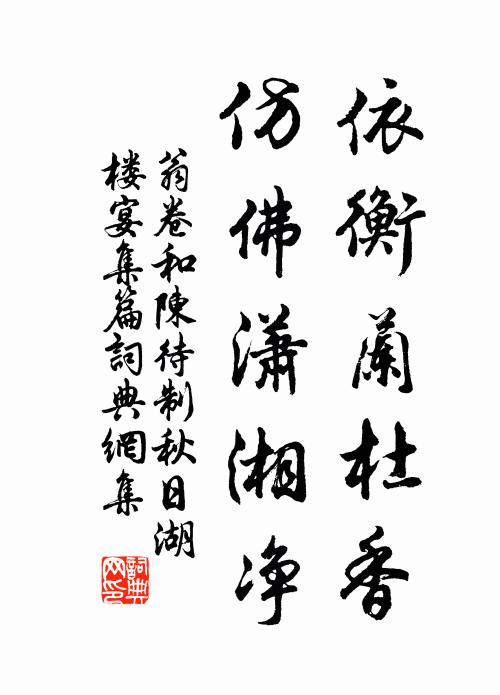 依衡蘭杜香
仿佛瀟湘净
翁卷和陳待制秋日湖
楼宴集篇詞典網集
詞典
网印